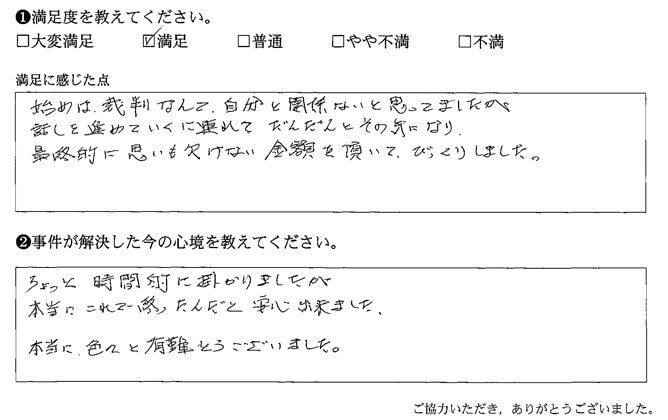 ❶満足度を教えてください。
□大変満足 ☑満足 □普通 □やや不満 □不満
満足に感じた点
始めは、裁判なんて、自分と関係ないと思ってましたが、
話しを進めていくに連れて だんだんとその気になり、
最終的に思いも欠けない金額を頂いて、びっくりしました。
❷事件が解決した今の心境を教えてください。
ちょっと 時間的に掛かりましたが
本当にこれで終ったんだと 安心出来ました、
本当に、色々と有難とうございました。
ご協力いただき，ありがとうございました。